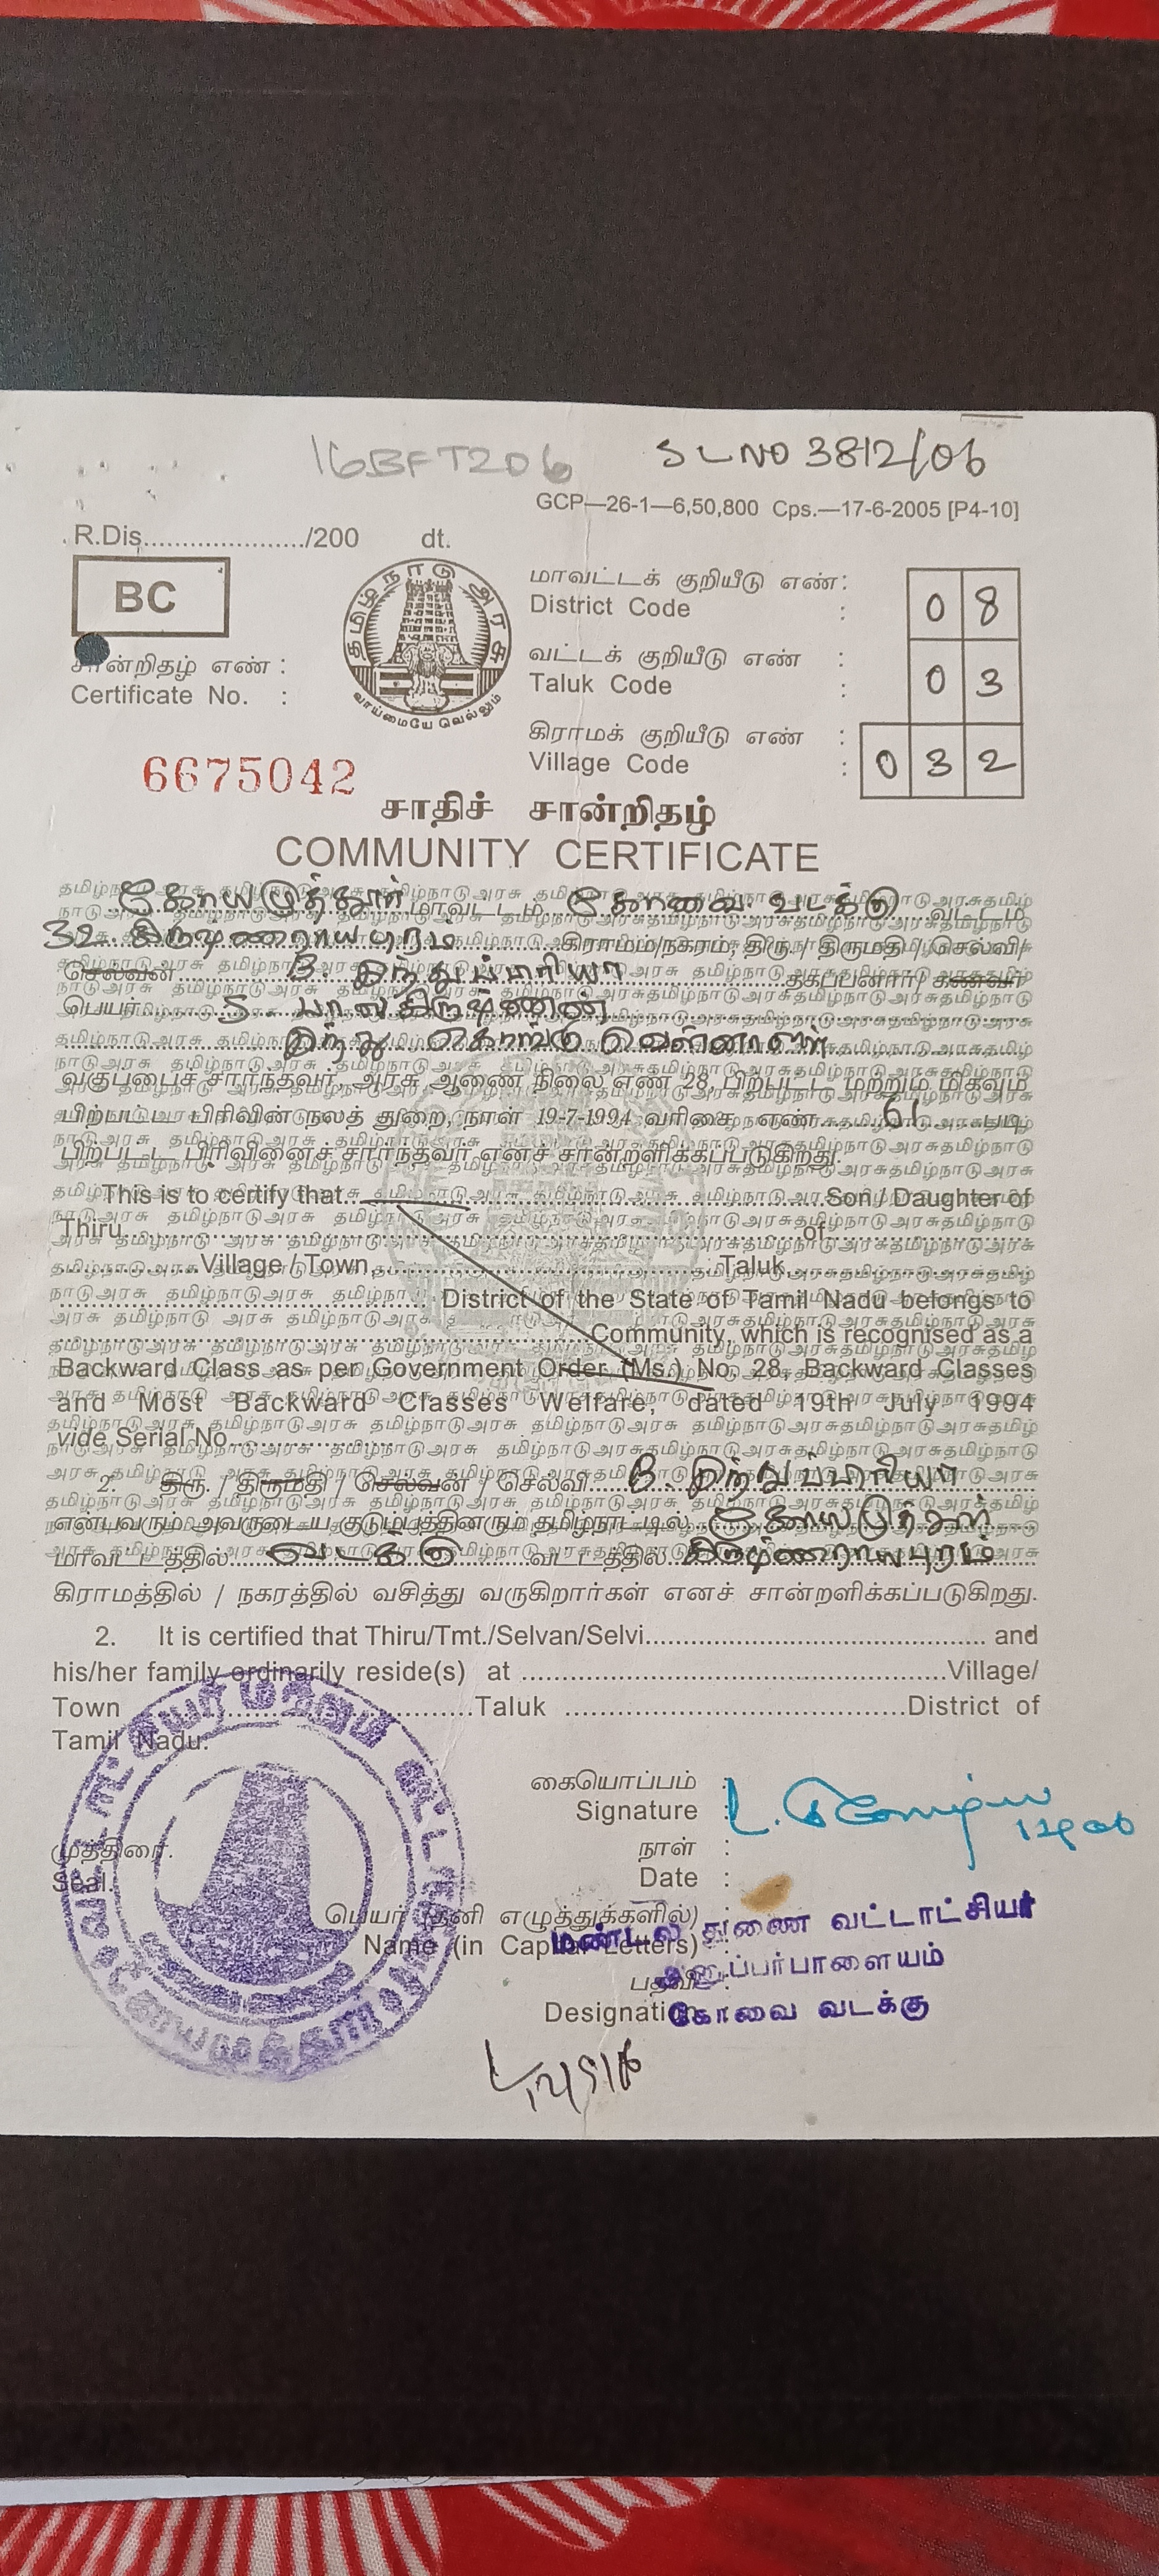 16BFT206
SL NO 3812/06
GCP—26-1—6,50,800 Cps.—17-6-2005 [P4-10]
R.Dis...................../200 dt.
BC
தமிழ்நாடு அரசு
வாய்மையே வெல்லும்
மாவட்டக் குறியீடு எண் :
District Code : 0 8
வட்டக் குறியீடு எண் :
Taluk Code : 0 3
கிராமக் குறியீடு எண் :
Village Code : 0 3 2
சான்றிதழ் எண் :
Certificate No. :
6675042
சாதிச் சான்றிதழ்
COMMUNITY CERTIFICATE
கோயமுத்தூர் மாவட்டம் கோவை வடக்கு வட்டம்
32 கிருஷ்ணராயபுரம் கிராமம்/நகரம், திரு. / திருமதி / செல்வி/
செல்வன் B. இந்துப்பிரியா தகப்பனார்/ கணவர்
பெயர் பாலகிருஷ்ணன்
இந்து கொங்கு வெள்ளாளர்
வகுப்பைச் சார்ந்தவர். அரசு ஆணை நிலை எண் 28, பிற்பட்ட மற்றும் மிகவும்
பிற்பட்ட பிரிவின் நலத் துறை, நாள் 19-7-1994 வரிசை எண் 61 படி
பிற்பட்ட பிரிவினைச் சார்ந்தவர் எனச் சான்றளிக்கப்படுகிறது.
This is to certify that Son / Daughter of
Thiru of
Village / Town, Taluk
District of the State of Tamil Nadu belongs to
Community, which is recognised as a
Backward Class as per Government Order (Ms.) No. 28, Backward Classes
and Most Backward Classes Welfare, dated 19th July 1994
vide Serial No.
2. திரு. / திருமதி / செல்வன் / செல்வி B. இந்துப்பிரியா
என்பவரும் அவருடைய குடும்பத்தினரும் தமிழ்நாட்டில் கோயமுத்தூர்
மாவட்டத்தில் வடக்கு வட்டத்தில் கிருஷ்ணராயபுரம்
கிராமத்தில் / நகரத்தில் வசித்து வருகிறார்கள் எனச் சான்றளிக்கப்படுகிறது.
2. It is certified that Thiru/Tmt./Selvan/Selvi and
his/her family ordinarily reside(s) at Village/
Town Taluk District of
Tamil Nadu.
கையொப்பம் :
Signature :
முத்திரை. நாள் :
Seal. Date :
பெயர் (தனி எழுத்துக்களில்)
Name (in Capital Letters) :
மண்டல துணை வட்டாட்சியர்
பதவி :
அனுப்பர்பாளையம்
Designation
கோவை வடக்கு